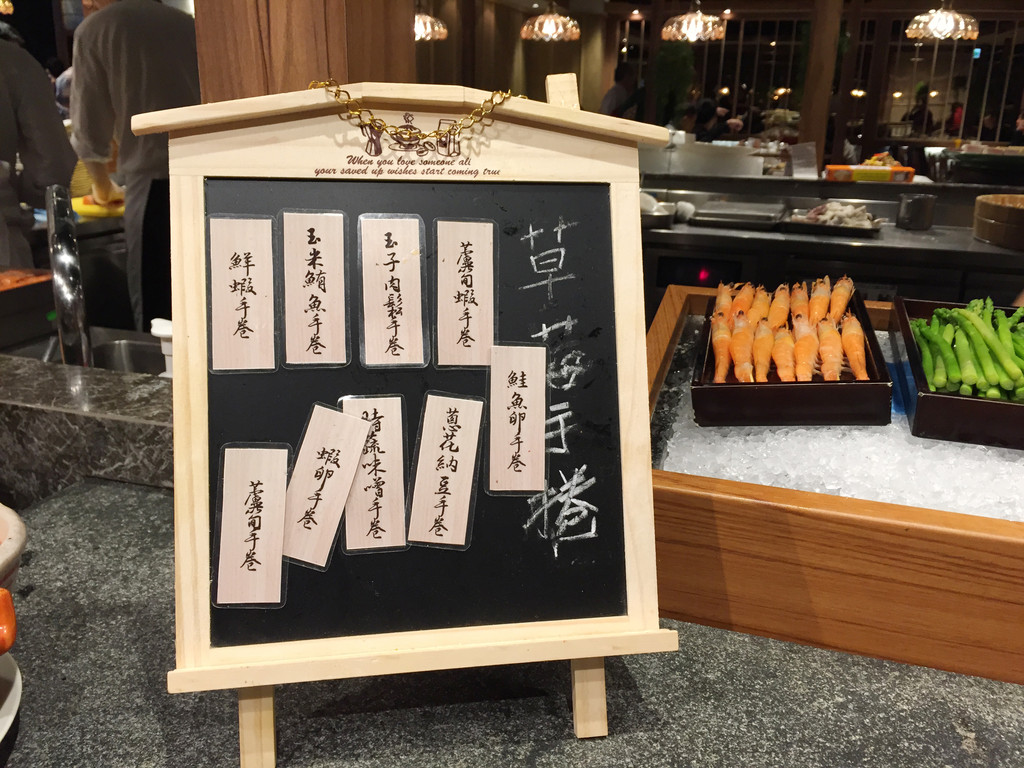 When you love someone all
your saved up wishes start coming true
鮮蝦手卷
玉米鮪魚手卷
玉子肉鬆手卷
蘆筍蝦手卷
草莓手捲
鮭魚卵手卷
蘆筍手卷
蝦卵手卷
味噌手卷
蔥花納豆手卷